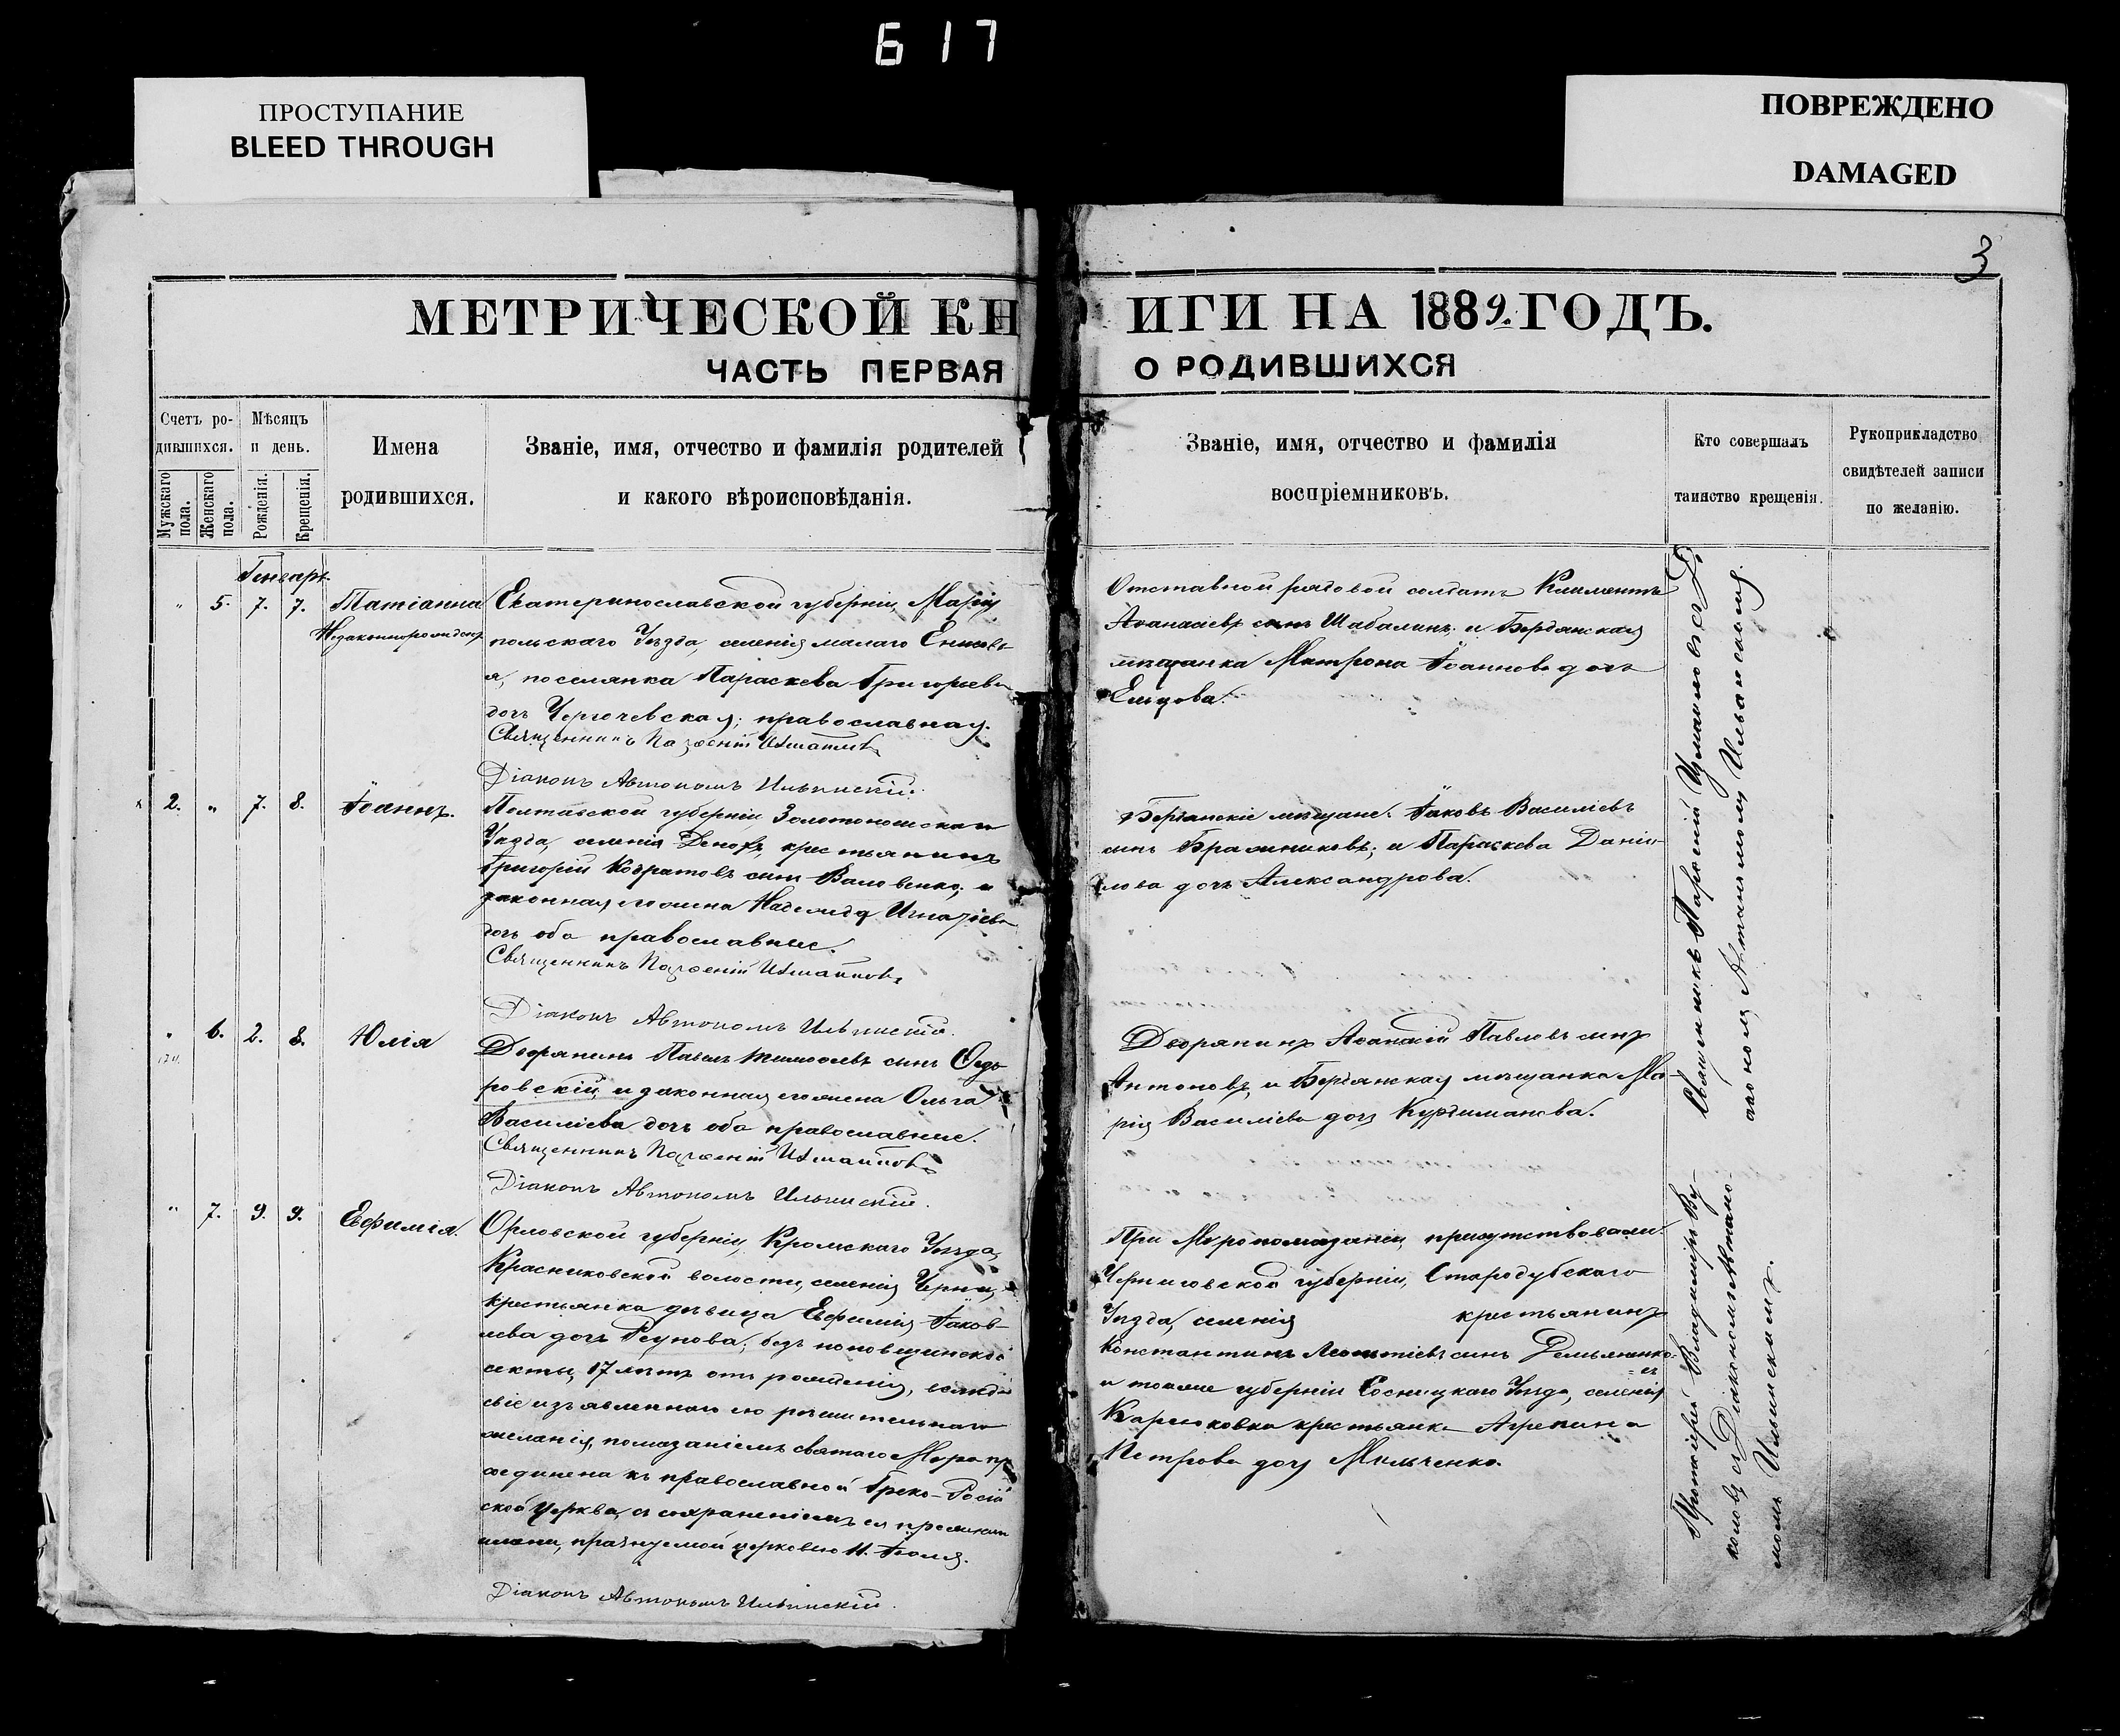 617
ПРОСТУПАНИЕ
BLEED THROUGH
ПОВРЕЖДЕНО
DAMAGED
3
МЕТРИЧЕСКОЙ КН ИГИ НА 1889. ГОДЪ.
ЧАСТЬ ПЕРВАЯ О РОДИВШИХСЯ
Счетъ ро-
дившихся.
Мужскаго пола.
Женскаго пола.
Мѣсяцъ
и день.
Рожденія.
Крещенія.
Имена
родившихся.
Званіе, имя, отчество и фамилія родителей
и какого вѣроисповѣданія.
Званіе, имя, отчество и фамилія
воспріемниковъ.
Кто совершалъ
таинство крещенія.
Рукоприкладство
свидѣтелей записи
по желанію.
Генварь
" 5. 7. 7. Татіанна
Незаконнорожден.
Екатеринославской губерніи, Маріу
польскаго Уѣзда, селенія малаго
я, поселянка Параскева Григорьева
дочь православная.
Священникъ Парѳеній Измаиловъ
Діаконъ Автономъ Ильинскій.
Отставной рядовой солдатъ Климентъ
Аѳанасіевъ сынъ Шабалинъ; и Бердянская
мѣщанка Матрона Іоаннова дочь
Ельцова.
2. " 7. 8. Іоаннъ.
Полтавской губерніи, Золотоношскаго
Уѣзда, селенія крестьянинъ
Григорій сынъ и
законная его жена Надежда Игнатіева
дочь оба православные.
Священникъ Парѳеній Измаиловъ
Діаконъ Автономъ Ильинскій.
Бердянскіе мѣщане: Іаковъ Василіевъ
сынъ и Параскева Даніи-
лова дочь Александрова.
" 6. 2. 8. Юлія
Дворянинъ Павелъ Тимоѳеевъ сынъ
ровскій, и законная его жена Ольга
Василіева дочь оба православные.
Священникъ Парѳеній Измаиловъ
Діаконъ Автономъ Ильинскій.
Дворянинъ Павловъ сынъ
Антоновъ, и Бердянская мѣщанка Ма-
рія Василіева дочь Курдиманова.
" 7. 9. 9. Евфимія.
Орловской губерніи, Кромскаго Уѣзда,
Красниковской волости, селенія
крестьянка дѣвица Евфимія Іаков-
лева дочь Реунова, безпоповщинской
секты, 17 лѣтъ отъ рожденія, вслѣд
свіе изъявленнаго ею рѣшительнаго
желанія, помазаніемъ святаго Мура пр
соединена къ православной Греко-Росій
ской Церкви, съ сохраненіемъ ея прежняго
имени, празнуемой церковію 11. Іюля.
Діаконъ Автономъ Ильинскій.
При Муропомазаніи, присутствовали:
Черниговской губерніи, Стародубскаго
Уѣзда, селенія крестьянинъ
Константинъ Леонтіевъ сынъ Демьяненко-
въ
и тойже губерніи Сосницкаго Уѣзда, селенія
крестьянка Агрепина
Петрова дочь Мельченко.
Священникъ Парѳеній Измаиловъ съ Ді
акономъ Автономомъ Ильинскимъ.
Протоіерей Владиміръ Ву-
коловъ съ Діакономъ Автоно-
момъ Ильинскимъ.